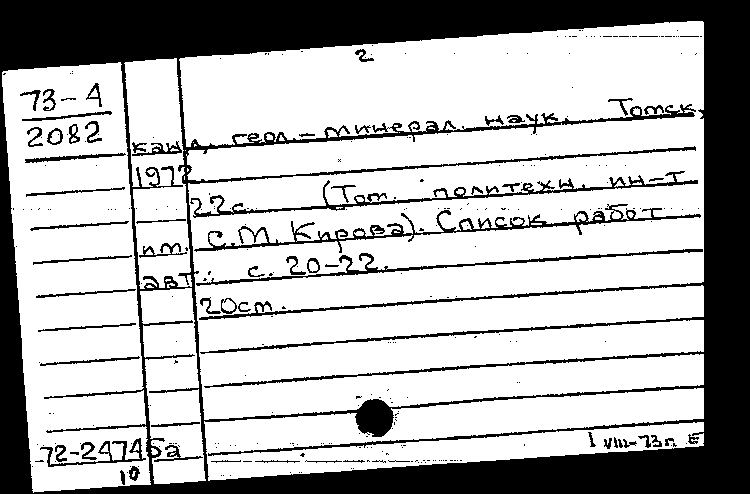 2
73-А
2082
канд. геол.-минерал. наук. Томск,
1972.
22с. (Том. политехн. ин-т
им. С.М. Кирова). Список работ
авт.: с. 20-22.
20см.
72-24745а
10
I VIII-73п Е